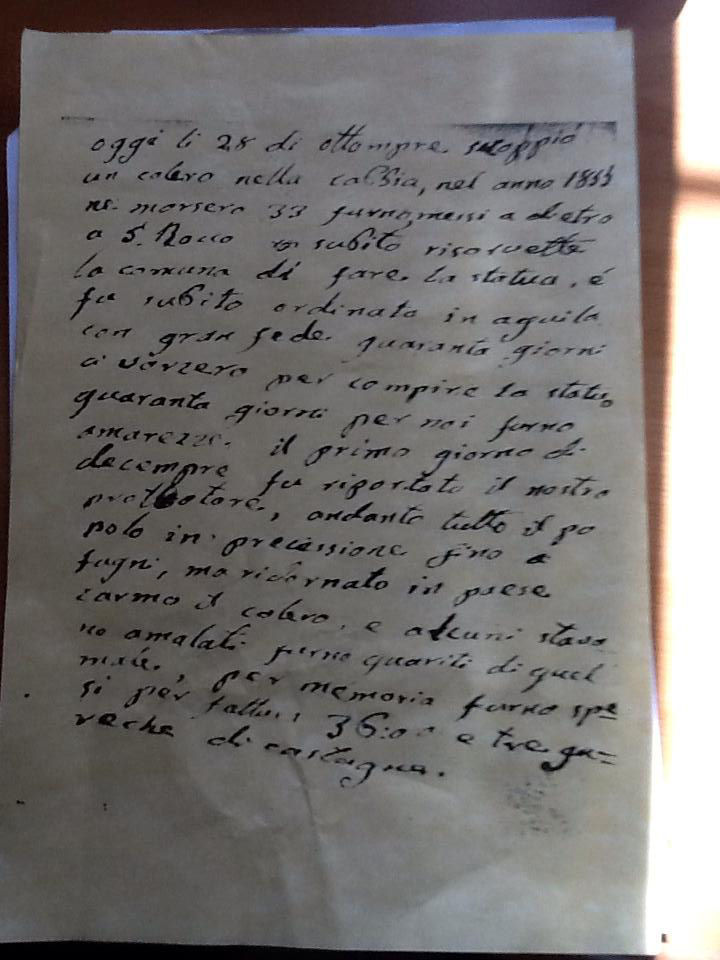 oggi li 28 di ottompre scoppiò
un colero nella cabbia, nel anno 1855
ne morsero 33 furno messi a dietro
a S. Rocco subito risorvette
la comuna di fare la statua, é
fu subito ordinato in aquila
con gran fede quaranta giorni
ci vorzero per compire la statua
quaranta giorni per noi furno
amarezze. il primo giorno di
decempre fu riportato il nostro
protettore, andanto tutto il po
polo in precissione fino a
fugni, ma ridornato in paese
carmo il colero, e alcuni stava
no amalati furno quariti di quel
male, per memoria furno spe=
si per fattu 36:00 e tre qu=
reche di castagne.